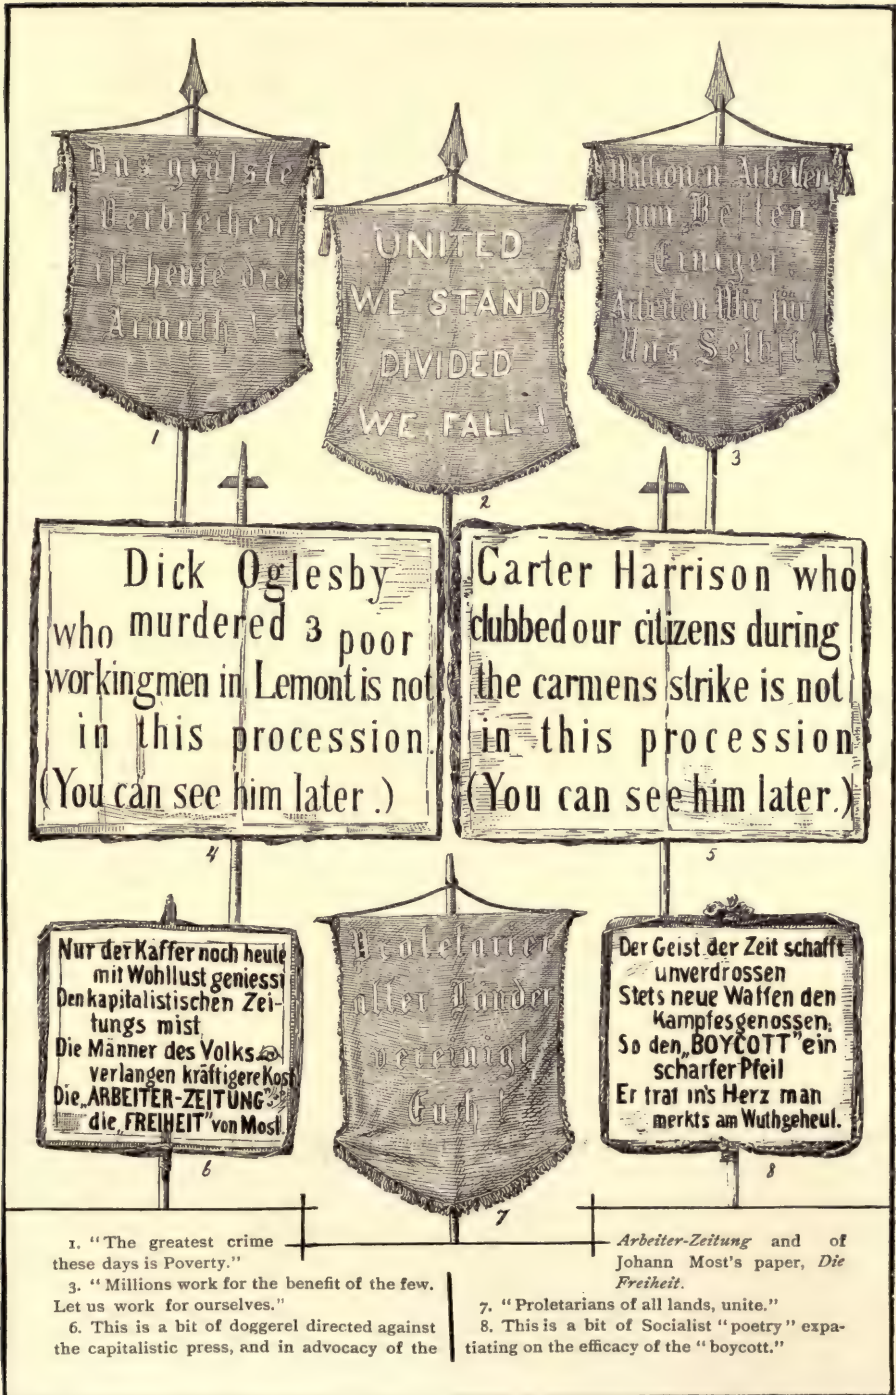 Das größte
Verbrechen
ist heute die
Armuth !
1
UNITED
WE STAND
DIVIDED
WE FALL !
2
Millionen Arbeiten
zum Besten
Einiger,
Arbeiten Wir für
Uns Selbst !
3
Dick Oglesby
who murdered 3 poor
workingmen in Lemont is not
in this procession.
(You can see him later.)
4
Carter Harrison who
clubbed our citizens during
the carmens strike is not
in this procession
(You can see him later.)
5
Nur der Kaffer noch heute
mit Wohllust geniesst
Den kapitalistischen Zei-
tungs mist
Die Männer des Volks
verlangen kräftigere Kost
Die „ARBEITER-ZEITUNG"
die „FREIHEIT" von Most.
6
Proletarier
aller Länder
vereinigt
Euch !
7
Der Geist der Zeit schafft
unverdrossen
Stets neue Waffen den
Kampfesgenossen;
So den „BOYCOTT" ein
scharfer Pfeil
Er traf in's Herz man
merkts am Wuthgeheul.
8
1. "The greatest crime
these days is Poverty."
3. "Millions work for the benefit of the few.
Let us work for ourselves."
6. This is a bit of doggerel directed against
the capitalistic press, and in advocacy of the
Arbeiter-Zeitung and of
Johann Most's paper, Die
Freiheit.
7. "Proletarians of all lands, unite."
8. This is a bit of Socialist "poetry" expa-
tiating on the efficacy of the "boycott."